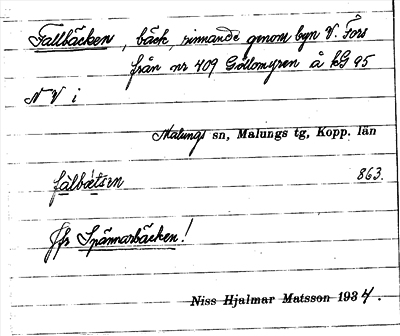 Fallbäcken, bäck, rinnande genom byn V. Fors
från nr 409 Gollomyren å kG 95
N V i
Malungs sn, Malungs tg, Kopp. län
fàlbǽtsen 863.
Jfr Spännarbäcken!
Niss Hjalmar Matsson 1934.